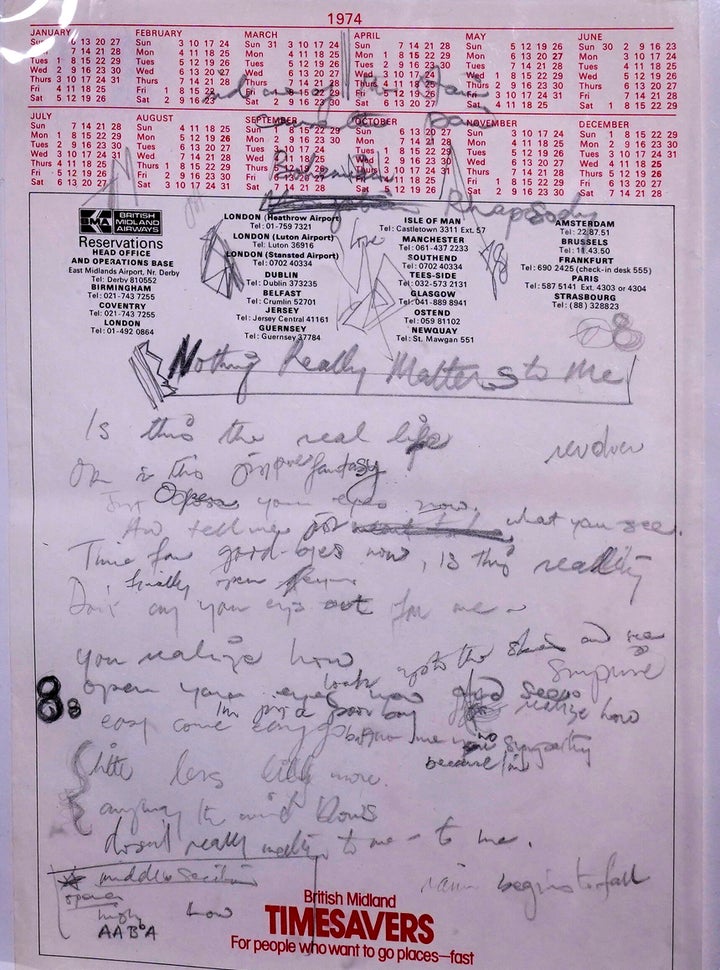 1974
JANUARY FEBRUARY MARCH APRIL MAY JUNE
Sun 6 13 20 27 Sun 3 10 17 24 Sun 31 3 10 17 24 Sun 7 14 21 28 Sun 5 12 19 26 Sun 30 2 9 16 23
Mon 7 14 21 28 Mon 4 11 18 25 Mon 4 11 18 25 Mon 1 8 15 22 29 Mon 6 13 20 27 Mon 3 10 17 24
Tues 1 8 15 22 29 Tues 5 12 19 26 Tues 5 12 19 26 Tues 2 9 16 23 30 Tues 7 14 21 28 Tues 4 11 18 25
Wed 2 9 16 23 30 Wed 6 13 20 27 Wed 6 13 20 27 Wed 3 10 17 24 Wed 1 8 15 22 29 Wed 5 12 19 26
Thurs 3 10 17 24 31 Thurs 7 14 21 28 Thurs 7 14 21 28 Thurs 4 11 18 25 Thurs 2 9 16 23 30 Thurs 6 13 20 27
Fri 4 11 18 25 Fri 1 8 15 22 Fri 1 8 15 22 29 Fri 5 12 19 26 Fri 3 10 17 24 31 Fri 7 14 21 28
Sat 5 12 19 26 Sat 2 9 16 23 Sat 2 9 16 23 30 Sat 6 13 20 27 Sat 4 11 18 25 Sat 1 8 15 22 29
JULY AUGUST SEPTEMBER OCTOBER NOVEMBER DECEMBER
Sun 7 14 21 28 Sun 4 11 18 25 Sun 1 8 15 22 29 Sun 6 13 20 27 Sun 3 10 17 24 Sun 1 8 15 22 29
Mon 1 8 15 22 29 Mon 5 12 19 26 Mon 2 9 16 23 30 Mon 7 14 21 28 Mon 4 11 18 25 Mon 2 9 16 23 30
Tues 2 9 16 23 30 Tues 6 13 20 27 Tues 3 10 17 24 Tues 1 8 15 22 29 Tues 5 12 19 26 Tues 3 10 17 24 31
Wed 3 10 17 24 31 Wed 7 14 21 28 Wed 4 11 18 25 Wed 2 9 16 23 30 Wed 6 13 20 27 Wed 4 11 18 25
Thurs 4 11 18 25 Thurs 1 8 15 22 29 Thurs 5 12 19 26 Thurs 3 10 17 24 31 Thurs 7 14 21 28 Thurs 5 12 19 26
Fri 5 12 19 26 Fri 2 9 16 23 30 Fri 6 13 20 27 Fri 4 11 18 25 Fri 1 8 15 22 29 Fri 6 13 20 27
Sat 6 13 20 27 Sat 3 10 17 24 31 Sat 7 14 21 28 Sat 5 12 19 26 Sat 2 9 16 23 30 Sat 7 14 21 28
Bohemian
Rhapsody
BMA BRITISH MIDLAND AIRWAYS
Reservations
HEAD OFFICE
AND OPERATIONS BASE
East Midlands Airport, Nr. Derby
Tel: Derby 810552
BIRMINGHAM
Tel: 021-743 7255
COVENTRY
Tel: 021-743 7255
LONDON
Tel: 01-492 0864
LONDON (Heathrow Airport)
Tel: 01-759 7321
LONDON (Luton Airport)
Tel: Luton 36916
LONDON (Stansted Airport)
Tel: 0702 40334
DUBLIN
Tel: Dublin 373235
BELFAST
Tel: Crumlin 52701
JERSEY
Tel: Jersey Central 41161
GUERNSEY
Tel: Guernsey 37784
ISLE OF MAN
Tel: Castletown 3311 Ext. 57
MANCHESTER
Tel: 061-437 2233
SOUTHEND
Tel: 0702 40334
TEES-SIDE
Tel: 032-573 2131
GLASGOW
Tel: 041-889 8941
OSTEND
Tel: 059 81102
NEWQUAY
Tel: St. Mawgan 551
AMSTERDAM
Tel: 22.87.51
BRUSSELS
Tel: 11.43.50
FRANKFURT
Tel: 690 2425 (check-in desk 555)
PARIS
Tel: 587 5141 Ext. 4303 or 4304
STRASBOURG
Tel: (88) 328823
Nothing Really Matters to Me
Is this the real life
or is this fantasy
Just Open your eyes now
And tell me what you see.
Time for good-byes now, is this reality
finally open
Don't cry your eyes out for me
you realize how
look up to the skies and see
open your eyes surprise
I'm just a poor boy realize how
easy come easy go
no sympathy
because I'm
little less little more
anyway the wind blows
doesn't really matter to me - to me.
middle section
opera
how
AABA
rain begins to fall
British Midland
TIMESAVERS
For people who want to go places—fast